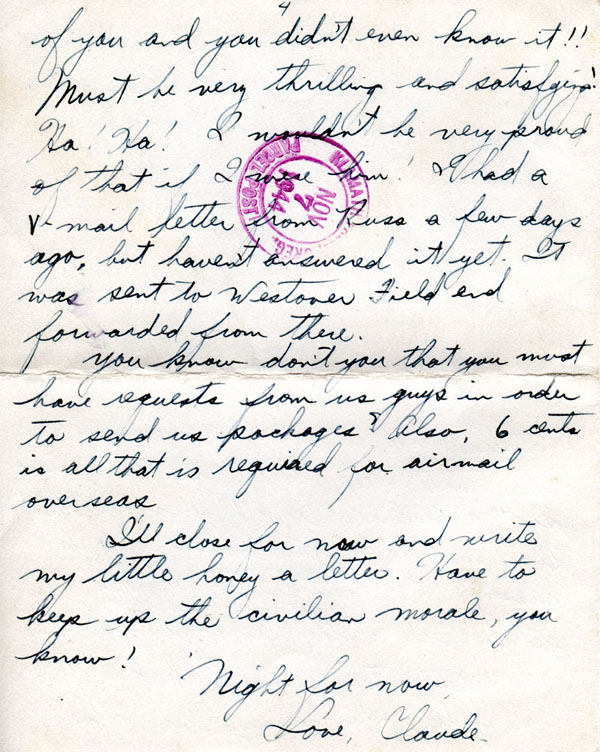 4
of you and you didn't even know it!!
Must be very thrilling and satisfying!
Ha! Ha! I wouldn't be very proud
of that if I were him! I had a
V-mail letter from Russ a few days
ago, but haven't answered it yet. It
was sent to Westover Field and
forwarded from there.
You know don't you that you must
have requests from us guys in order
to send us packages? Also, 6 cents
is all that is required for airmail
overseas
I'll close for now and write
my little honey a letter. Have to
keep up the civilian morale, you
know!
'Night for now,
Love, Claude.
KLAMATH OREG.
NOV
7
1944
PARCEL POST